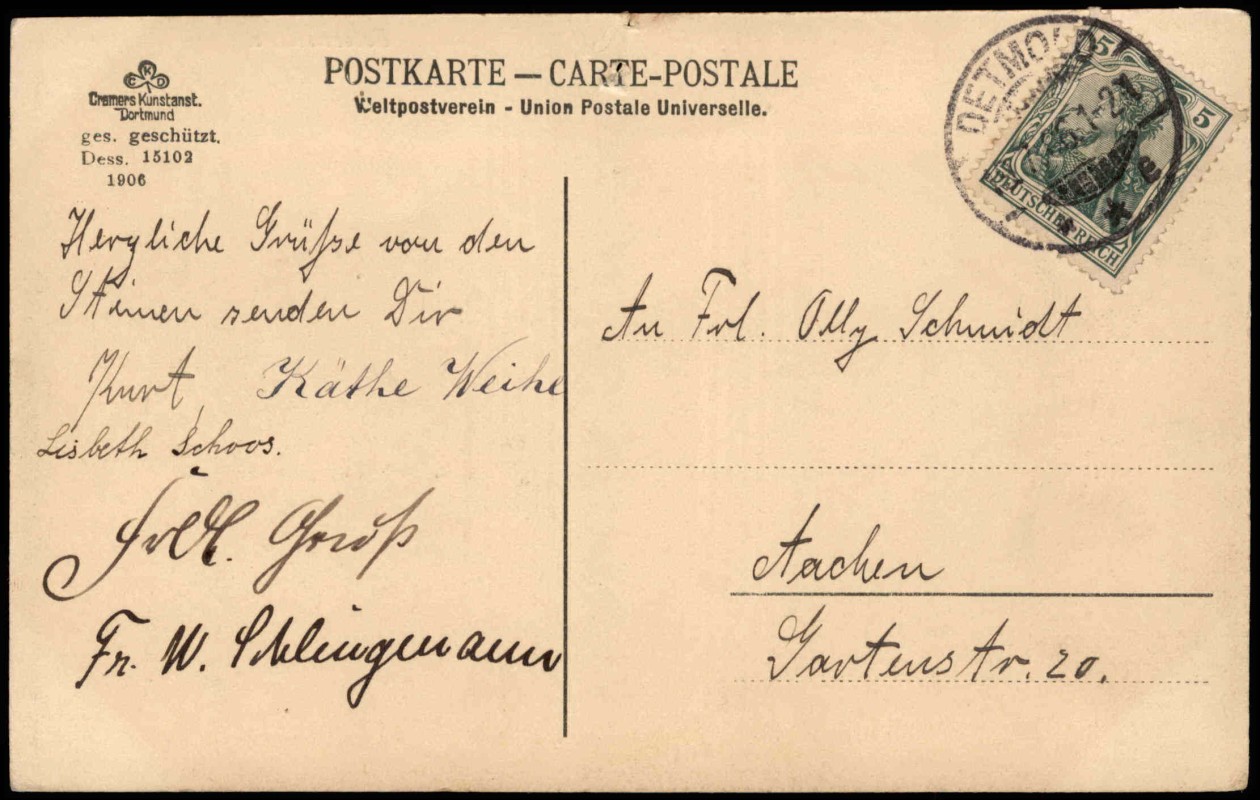 CKD
Cramers Kunstanst.
Dortmund
ges. geschützt.
Dess. 15102
1906
POSTKARTE — CARTE-POSTALE
Weltpostverein - Union Postale Universelle.
DETMOLD
5
5
DEUTSCHES REICH
Herzliche Grüße von den
Steinen senden Dir
Kurt, Käthe Weihe
Lisbeth Schoos.
Frdl. Gruß
Fr. W. Schlingmann
An Frl. Olly Schmidt
Aachen
Gartenstr. 20.